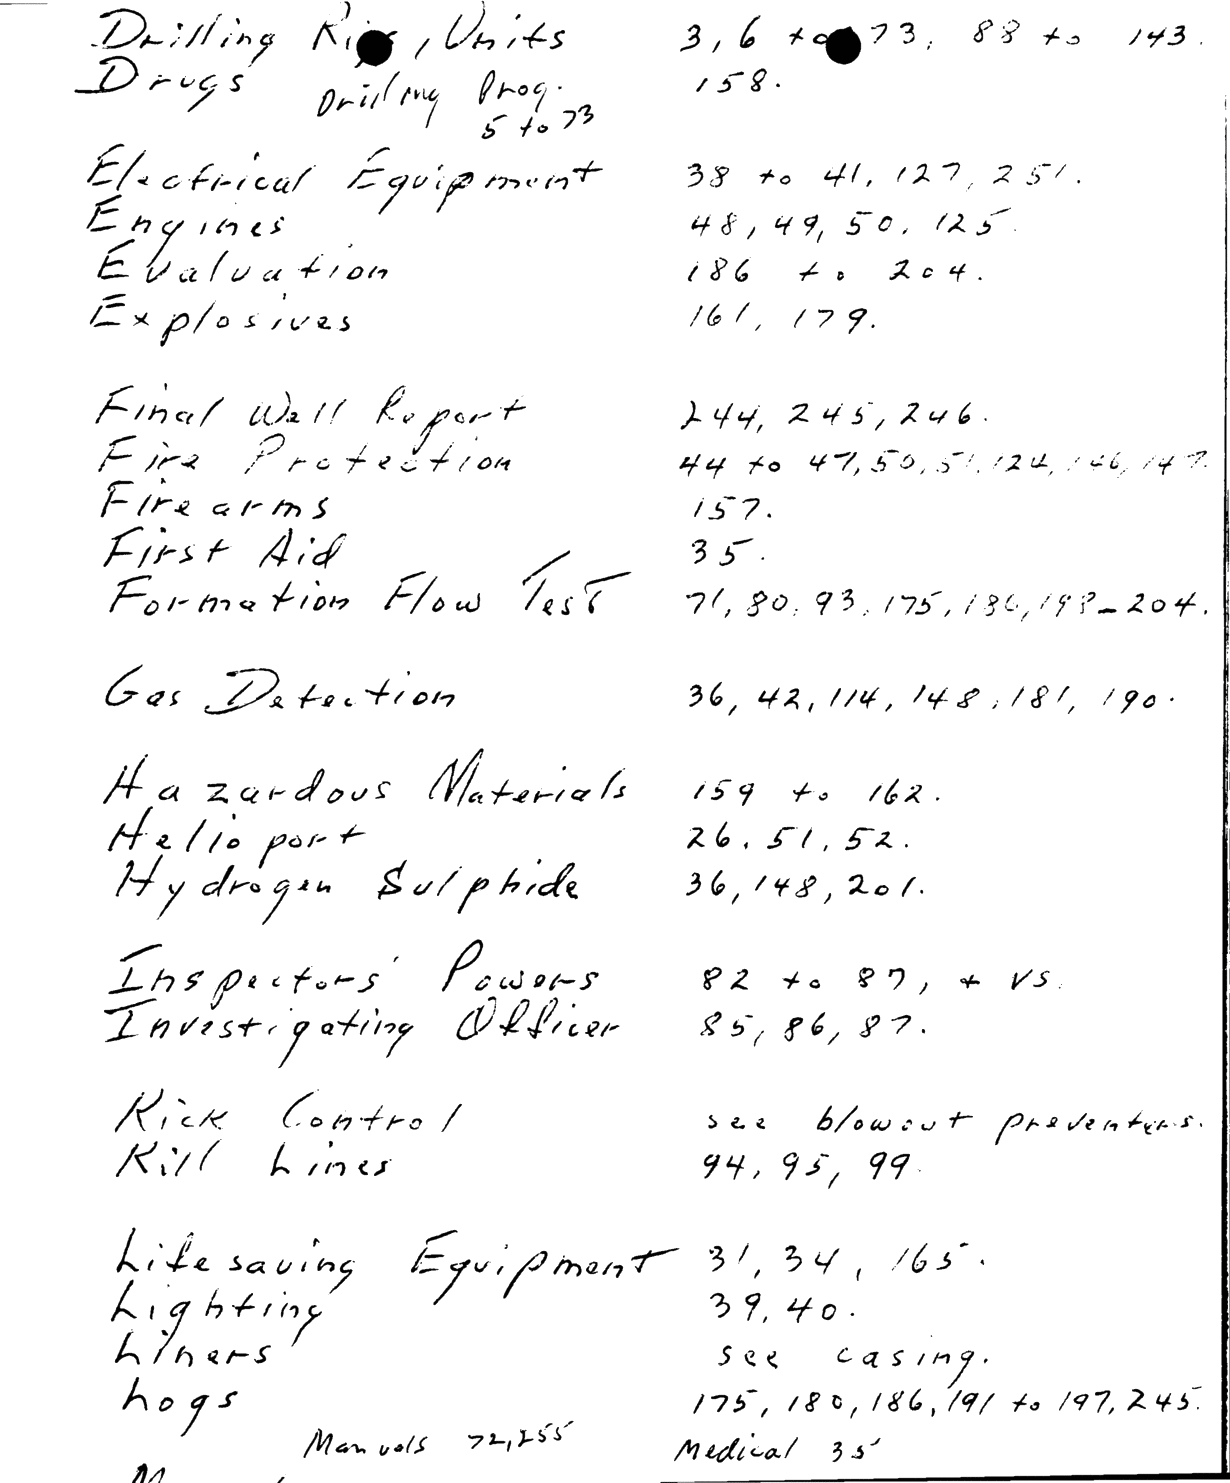 Drilling Rigs, Units 3, 6 to 73, 88 to 143.
Drugs 158.
Drilling Prog.
5 to 73
Electrical Equipment 38 to 41, 127, 251.
Engines 48, 49, 50, 125.
Evaluation 186 to 204.
Explosives 161, 179.
Final Well Report 244, 245, 246.
Fire Protection 44 to 47, 50, 51, 124, 146, 147.
Firearms 157.
First Aid 35.
Formation Flow Test 71, 80, 93, 175, 186, 198-204.
Gas Detection 36, 42, 114, 148, 181, 190.
Hazardous Materials 159 to 162.
Helioport 26, 51, 52.
Hydrogen Sulphide 36, 148, 201.
Inspectors' Powers 82 to 87, + VS.
Investigating Officer 85, 86, 87.
Kick Control see blowout preventers.
Kill Lines 94, 95, 99.
Lifesaving Equipment 31, 34, 165.
Lighting 39, 40.
Liners see casing.
Logs 175, 180, 186, 191 to 197, 245.
Manuals 72, 255 Medical 35